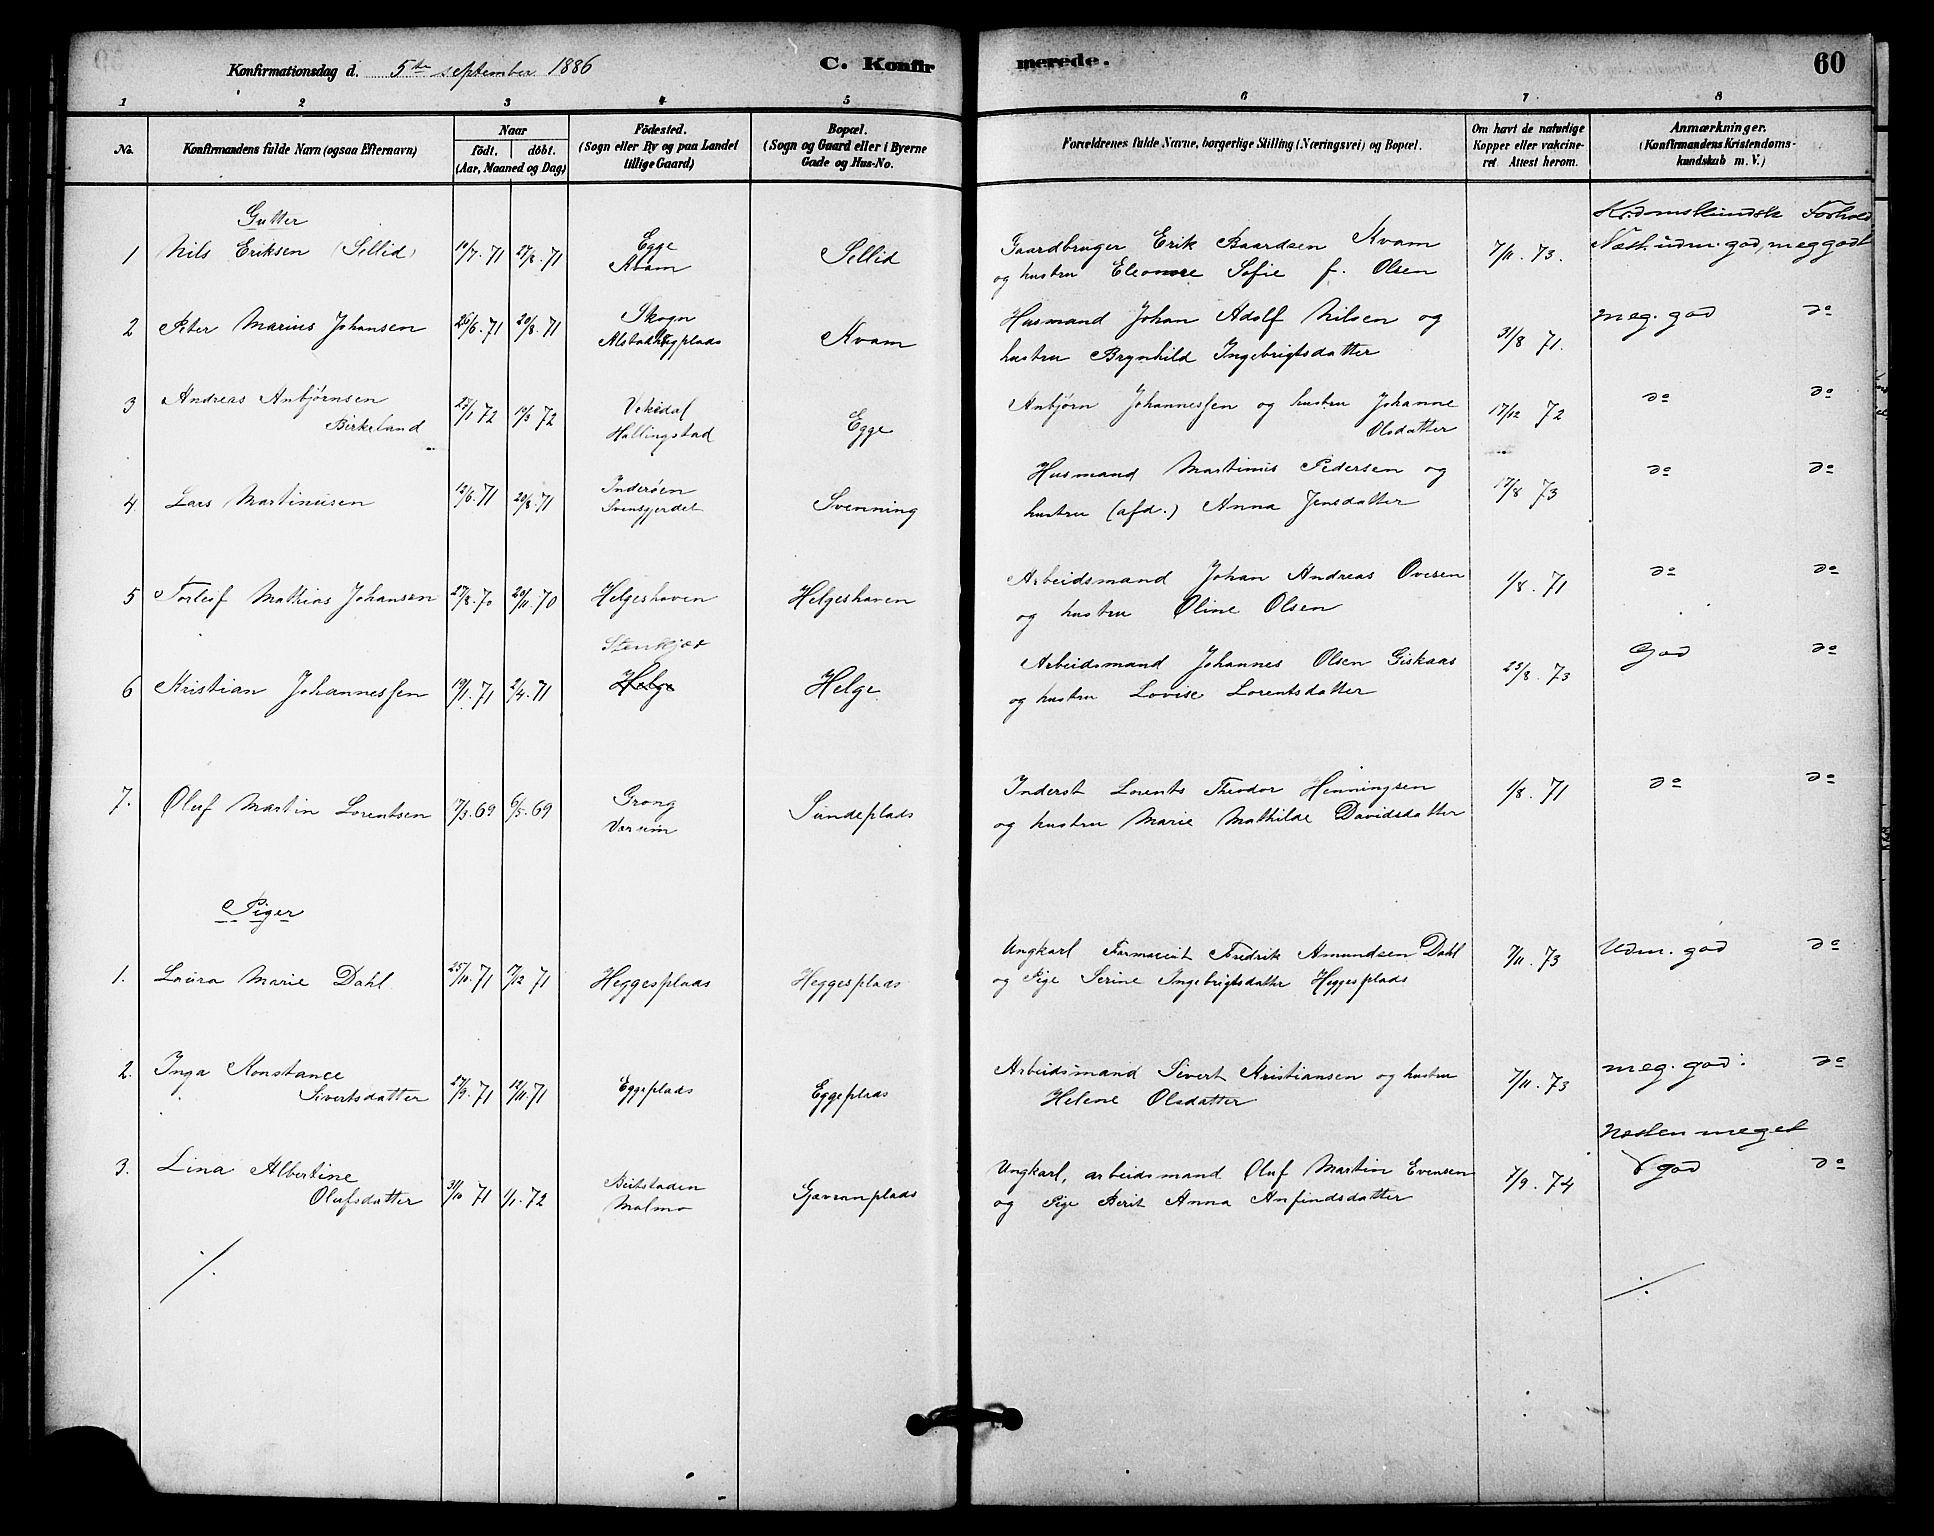 Konfirmationsdag d. 5te september 1886 C. Konfirmerede. 60
1 2 3 4 5 6 7 8
No. Konfirmandens fulde Navn (ogsaa Efternavn) Naar födt. döbt. (Aar, Maaned og Dag) Födested. (Sogn eller By og paa Landet tillige Gaard) Bopæl. (Sogn og Gaard eller i Byerne Gade og Hus-No. Forældrenes fulde Navne, borgerlige Stilling (Næringsvei) og Bopæl. Om havt de naturlige Kopper eller vakcineret Attest herom. Anmærkninger. (Konfirmandens Kristendomskundskab m. V.)
Gutter Krdmskundsk Forhold
1 Nils Eriksen (Sellid) 10/7 71 27/8 71 Egge Kvam Sellid Gaardbruger Erik Baardsen Kvam 7/11. 73. Næst. udm. god, meg godt
og hustru Eleonore Sofie f. Olsen
2 Peter Marius Johansen 26/6. 71 20/8. 71 Skogn Kvam Husmand Johan Adolf Nilsen og 31/8 71. meg. god do
hustru Brynhild Ingebrigtsdatter
3 Andreas Anbjørnsen Birkeland 25/1 72 19/3 72 Vekedal Hallingstad Egge Anbjørn Johannessen og hustru Johanne Olsdatter 17/12 72 do do
4 Lars Martinusen 12/6. 71 20/8. 71 Inderøen Svensgjerdet Svenning Husmand Martinus Pedersen og 17/8 73 do do
hustru (afd.) Anna Jensdatter
5 Torleof Mathias Johansen 27/8. 70 20/11. 70 Helgeshaven Helgeshaven Arbeidsmand Johan Andreas Ovesen 1/8. 71 do do
og hustru Oline Olsen
6 Kristian Johannessen 19/1. 71 2/4. 71 Stenkjær Helge Helge Arbeidsmand Johannes Olsen Giskaas 23/8. 73 God do
og hustru Lovise Lorentsdatter
7. Oluf Martin Lorentsen 17/3. 69 6/5. 69 Grong Værum Sundeplads Inderst Lorents Theodor Henningsen 1/8. 71 do do
og hustru Marie Mathilde Davidsdatter
Piger
1. Laura Marie Dahl 25/10. 71 17/12 71 Heggesplads Heggesplads Ungkarl Farmaceut Fredrik Amundsen Dahl 7/11. 73 Udm. god do
og Pige Serine Ingebrigtsdatter Heggesplads
2. Inga Konstance Sivertsdatter 27/9. 71 12/11. 71 Eggeplads Eggeplads Arbeidsmand Sivert Kristiansen og hustru 7/11. 73 meg. god. do
Helene Olsdatter
3. Lina Albertine Olufsdatter 31/10 71 1/1. 72 Beitstaden Malmo Gjævranplads Ungkarl, arbeidsmand Oluf Martin Evensen 7/9. 74 Næsten meget god do
og Pige Berit Anna Anfindsdatter